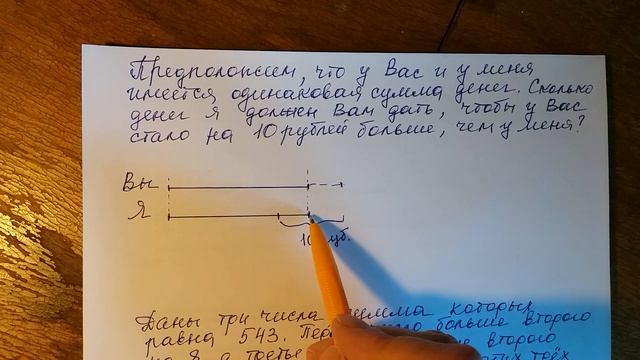 Предположим, что у Вас и у меня
имеется одинаковая сумма денег. Сколько
денег я должен Вам дать, чтобы у Вас
стало на 10 рублей больше, чем у меня?
Вы
Я
Даны три числа сумма которых
равна 543. больше второго
на 8, а третье второго
этих трёх